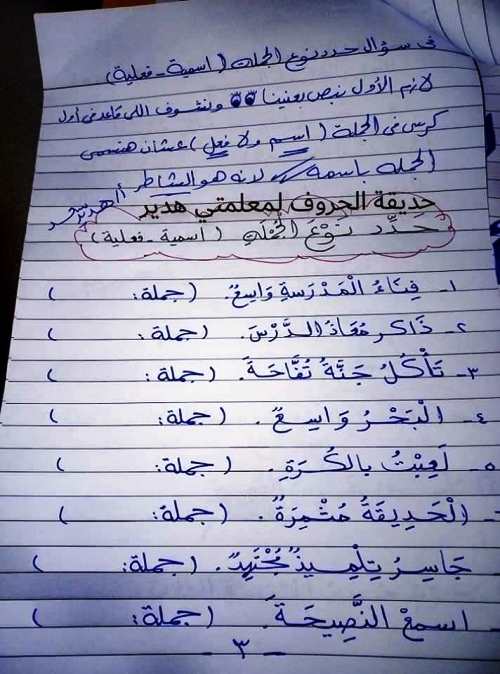 فى سؤال حدد نوع الجملة (اسمية - فعلية)
لازم الأول نبص بعنينا 👀 ونشوف اللى قاعد فى أول
كرسى فى الجملة (اسم ولا فعل) عشان هنسمى
الجملة باسمه لانه هو الشاطر أ/هدير
حديقة الحروف لمعلمتي هدير
حَدِّد نَوْع الجُمْلَة (اسمية - فعلية)
١- فِنَاءُ الْمَدْرَسَةِ وَاسِعٌ. (جملة: )
٢- ذَاكَرَ مُعَاذُ الدَّرْسَ. (جملة: )
٣- تَأْكُلُ جَنَّةُ تُفَّاحَةً. (جملة: )
٤- الْبَحْرُ وَاسِعٌ. (جملة: )
٥- لَعِبْتُ بِالْكُرَةِ. (جملة: )
- الْحَدِيقَةُ مُثْمِرَةٌ. (جملة: )
- جَاسِرُ تِلْمِيذٌ مُجْتَهِدٌ. (جملة: )
- اسمعْ النَّصِيحَةَ. (جملة: )
- ٣ -